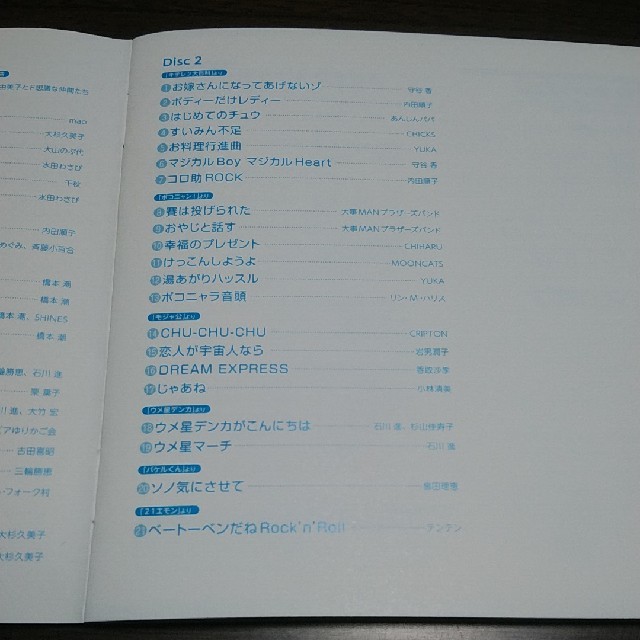 mao
大杉久美子
大山のぶ代
水田わさび
水田わさび
内田順子
橋本 潮
橋本 潮
SHINES
橋本 潮
石川 進
大竹 宏
吉田喜昭
三輪勝恵
フォーク村
大杉久美子
大杉久美子
Disc 2
『キテレツ大百科』より
1 お嫁さんになってあげないゾ 守谷 香
2 ボディーだけレディー 内田順子
3 はじめてのチュウ あんしんパパ
4 すいみん不足 CHICKS
5 お料理行進曲 YUKA
6 マジカル Boy マジカル Heart 守谷 香
7 コロ助 ROCK 内田順子
『ポコニャン』より
8 賽は投げられた 大事MANブラザーズバンド
9 おやじと話す 大事MANブラザーズバンド
10 幸福のプレゼント CHIHARU
11 けっこんしようよ MOONCATS
12 湯あがりハッスル YUKA
13 ポコニャラ音頭 リン・M・ハリス
『モジャ公』より
14 CHU-CHU-CHU
15 恋人が宇宙人なら
16 DREAM EXPRESS
17 じゃあね 小林清美
『ウメ星デンカ』より
18 ウメ星デンカがこんにちは 石川 進、杉山佳寿子
19 ウメ星マーチ 石川 進
『バケルくん』より
20 ソノ気にさせて
『21エモン』より
21 ベートーベンだね Rock'n'Roll テンテン